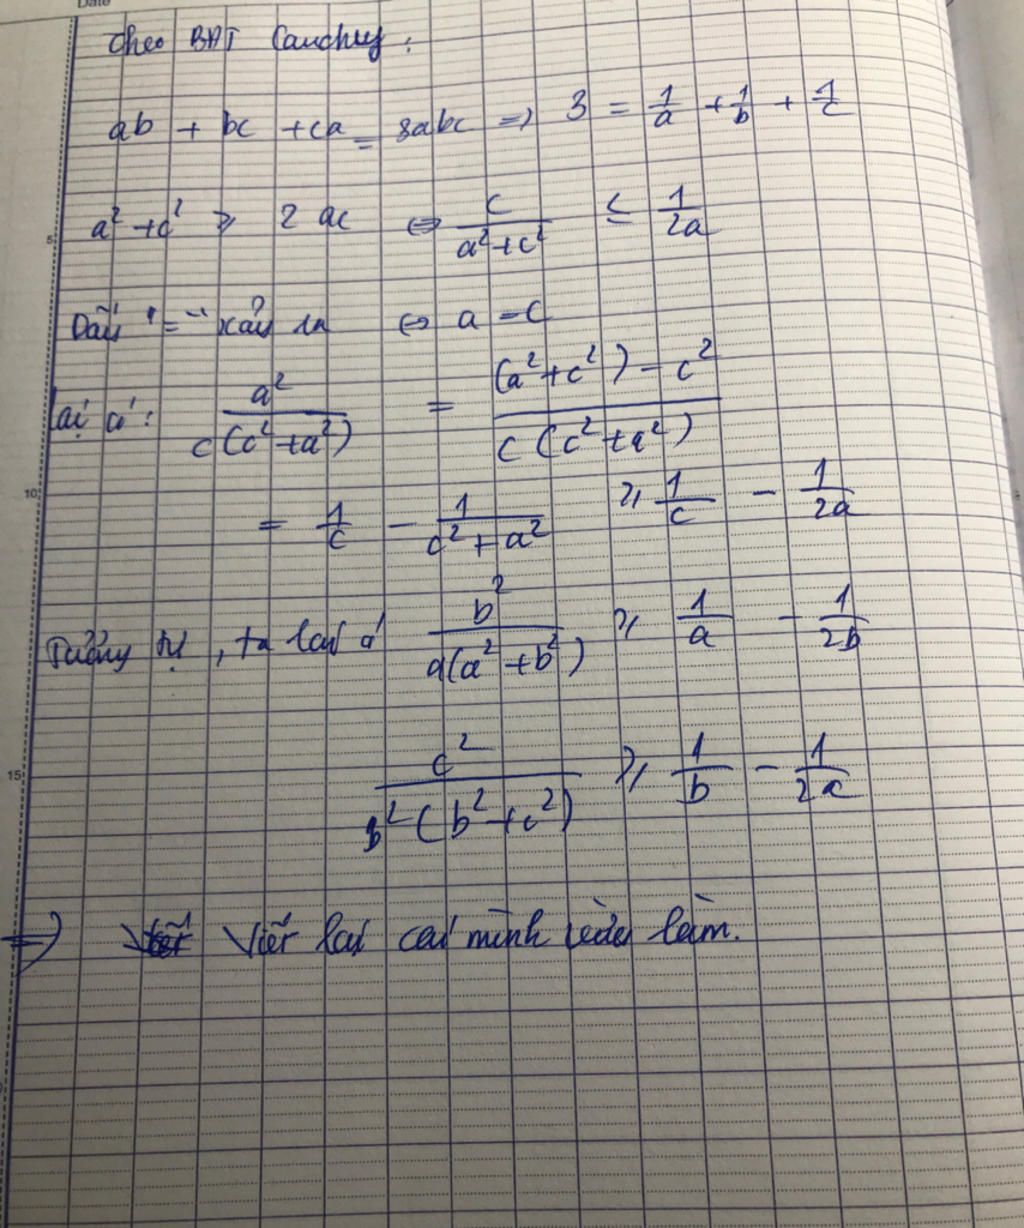 Date
Theo BĐT Cauchuy :
ab + bc + ca = 3abc => 3 = 1/a + 1/b + 1/c
a² + c² ≥ 2ac ⇔ c/(a² + c²) ≤ 1/2a
Dấu "=" xảy ra ⇔ a = c
Lại có: a²/(c(c² + a²)) = ((a² + c²) - c²)/(c(c² + a²))
= 1/c - 1/(c² + a²) ≥ 1/c - 1/2a
Tương tự, ta lại có b²/(a(a² + b²)) ≥ 1/a - 1/2b
c²/(b²(b² + c²)) ≥ 1/b - 1/2c
=> Viết lại cái mình làm.
5
10
15